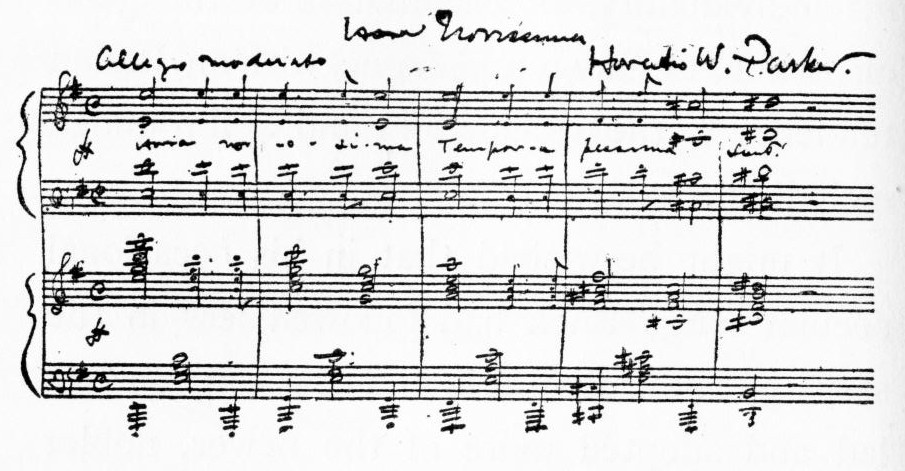 Hora Novissima
Allegro moderato Horatio W. Parker.
Hora no-vi-si-ma Tempor-a pessima sunt.